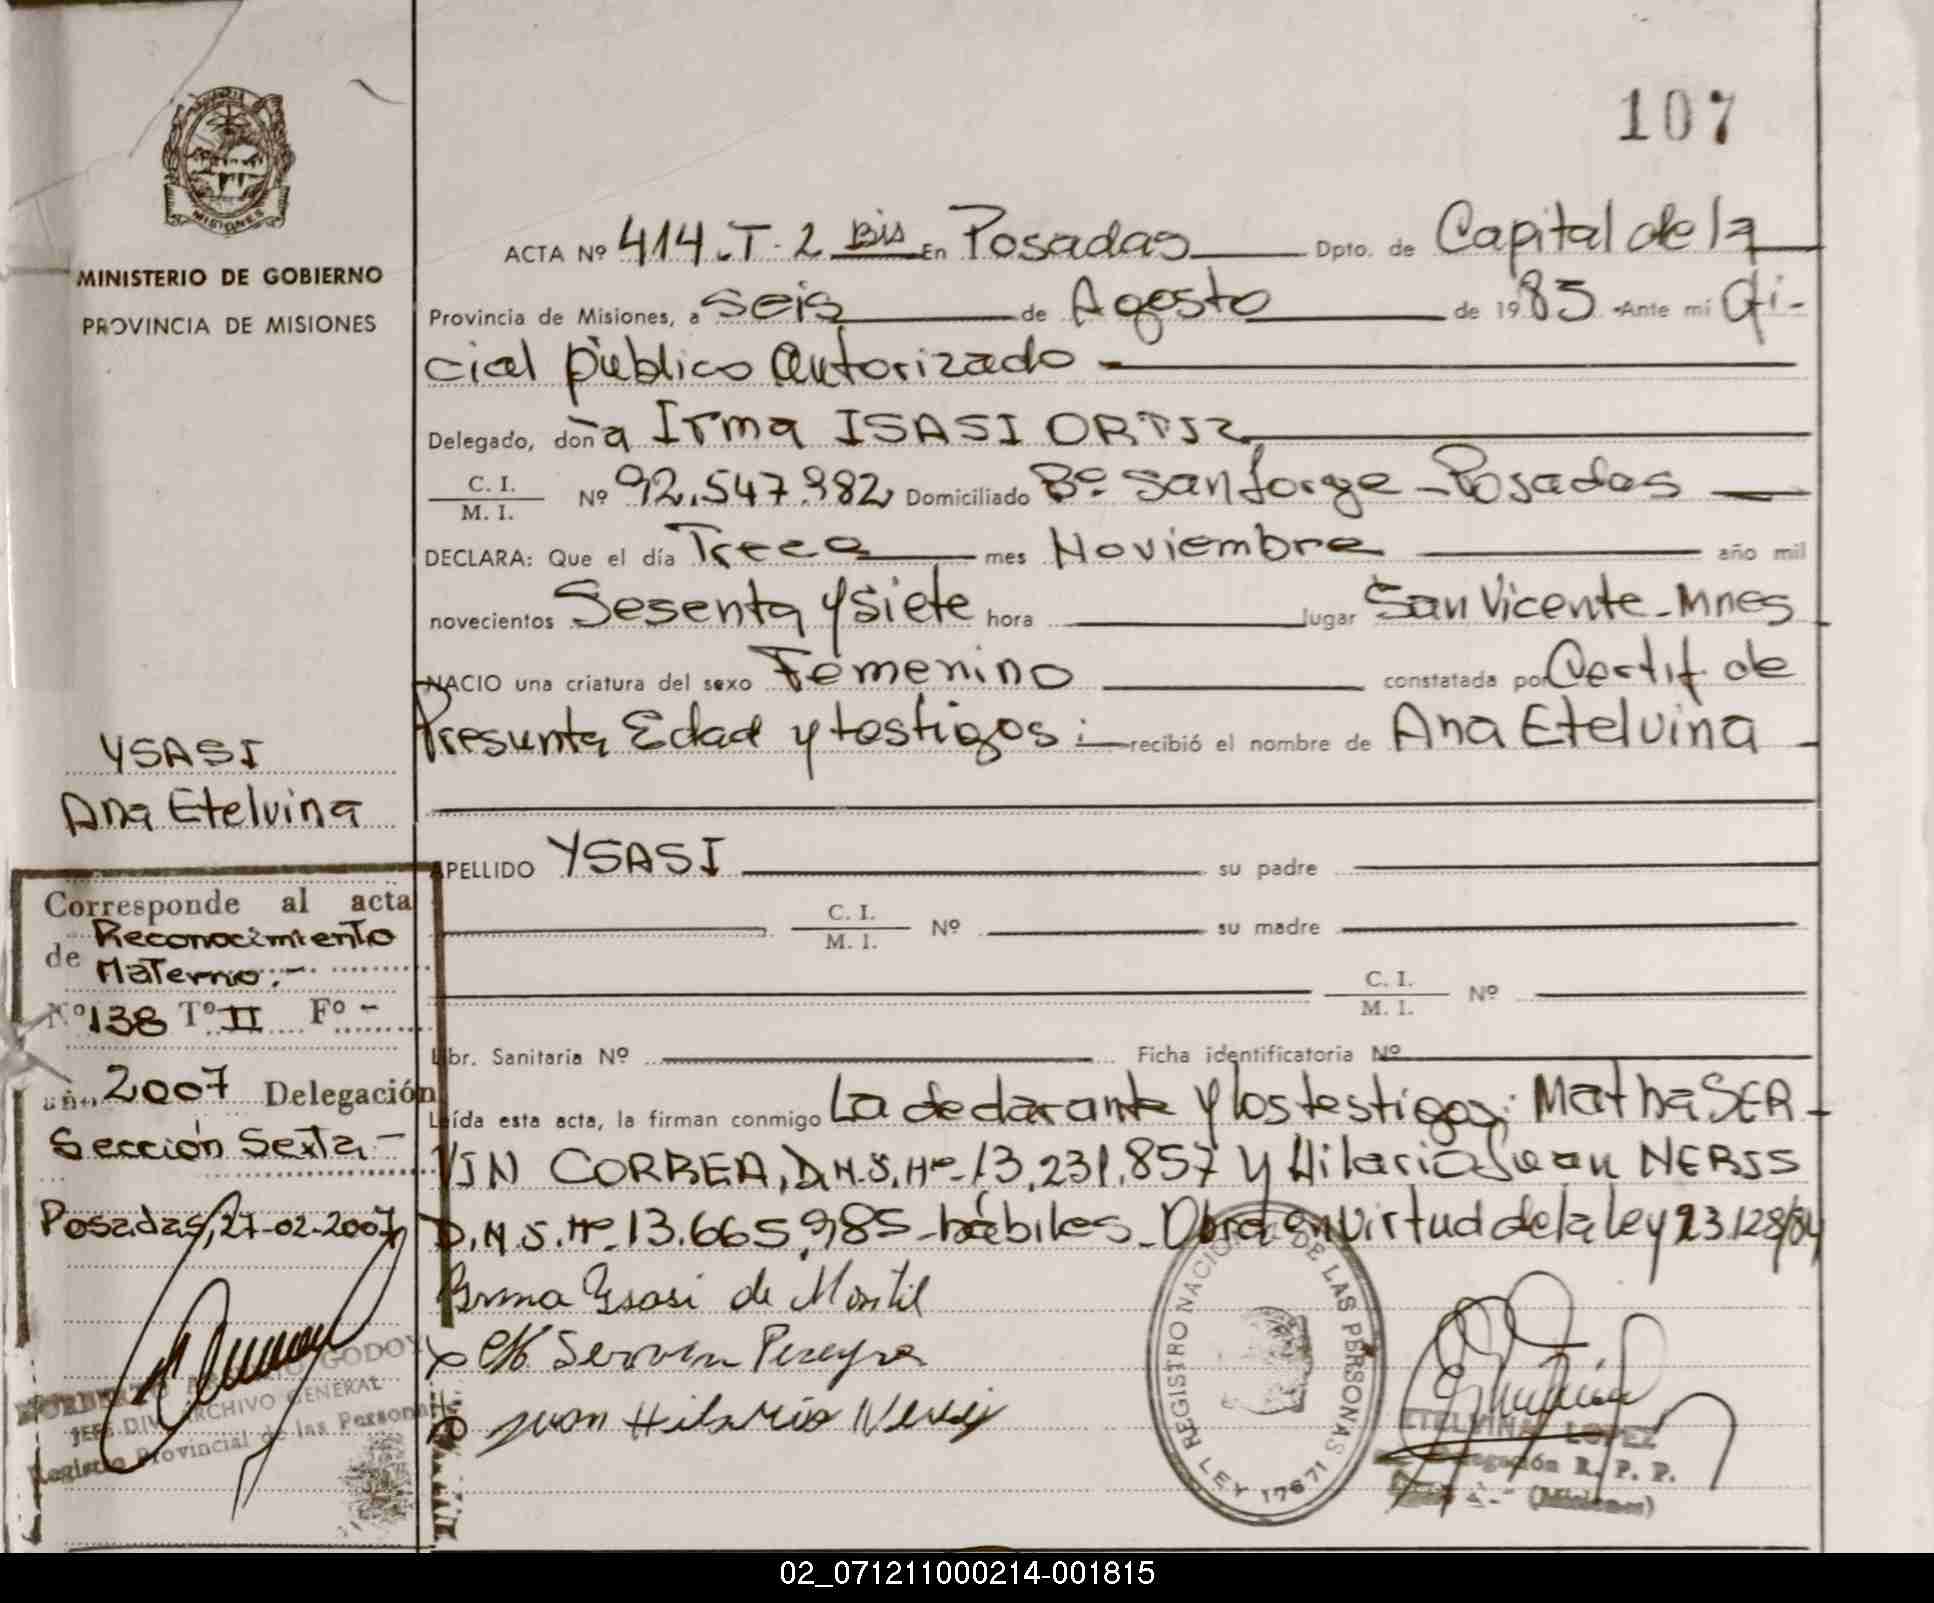 107
MISIONES
MINISTERIO DE GOBIERNO
PROVINCIA DE MISIONES
ACTA Nº 414.T.2 Bis En Posadas Dpto. de Capital de la
Provincia de Misiones, a seis de Agosto de 1985 Ante mí Ofi-
cial público autorizado
Delegado, doña Irma ISASI ORTIZ
C. I.
M. I.
Nº 92.547.982 Domiciliado Bº San Jorge - Posadas
DECLARA: Que el día Trece mes Noviembre año mil
novecientos Sesenta y siete hora lugar San Vicente - Mnes
NACIO una criatura del sexo Femenino constatada por Certif. de
Presunta Edad y testigos; recibió el nombre de Ana Etelvina
APELLIDO YSASI su padre
C. I.
M. I.
Nº su madre
C. I.
M. I.
Nº
Libr. Sanitaria Nº Ficha identificatoria Nº
Leída esta acta, la firman conmigo La declarante y los testigos: Matha SER-
VIN CORREA, D.N.I. Nº 13.231.857 y Hilario Juan NERIS
D.N.I. Nº 13.665.985 - hábiles - Obra en virtud de la ley 23.128/84
Ysasi de Montiel
Servin Pereyra
Juan Hilario
REGISTRO NACIONAL DE LAS PERSONAS
LEY 17671
ETELVINA LOPEZ
Delegación R. P. P.
(Misiones)
YSASI
Ana Etelvina
Corresponde al acta
de Reconocimiento
Materno.-
Nº 138 Tº II Fº -
año 2007 Delegación
Sección Sexta -
Posadas, 27-02-2007
NORBERTO GODOY
JEFE DIV. ARCHIVO GENERAL
Registro Provincial de las Personas
02_071211000214-001815